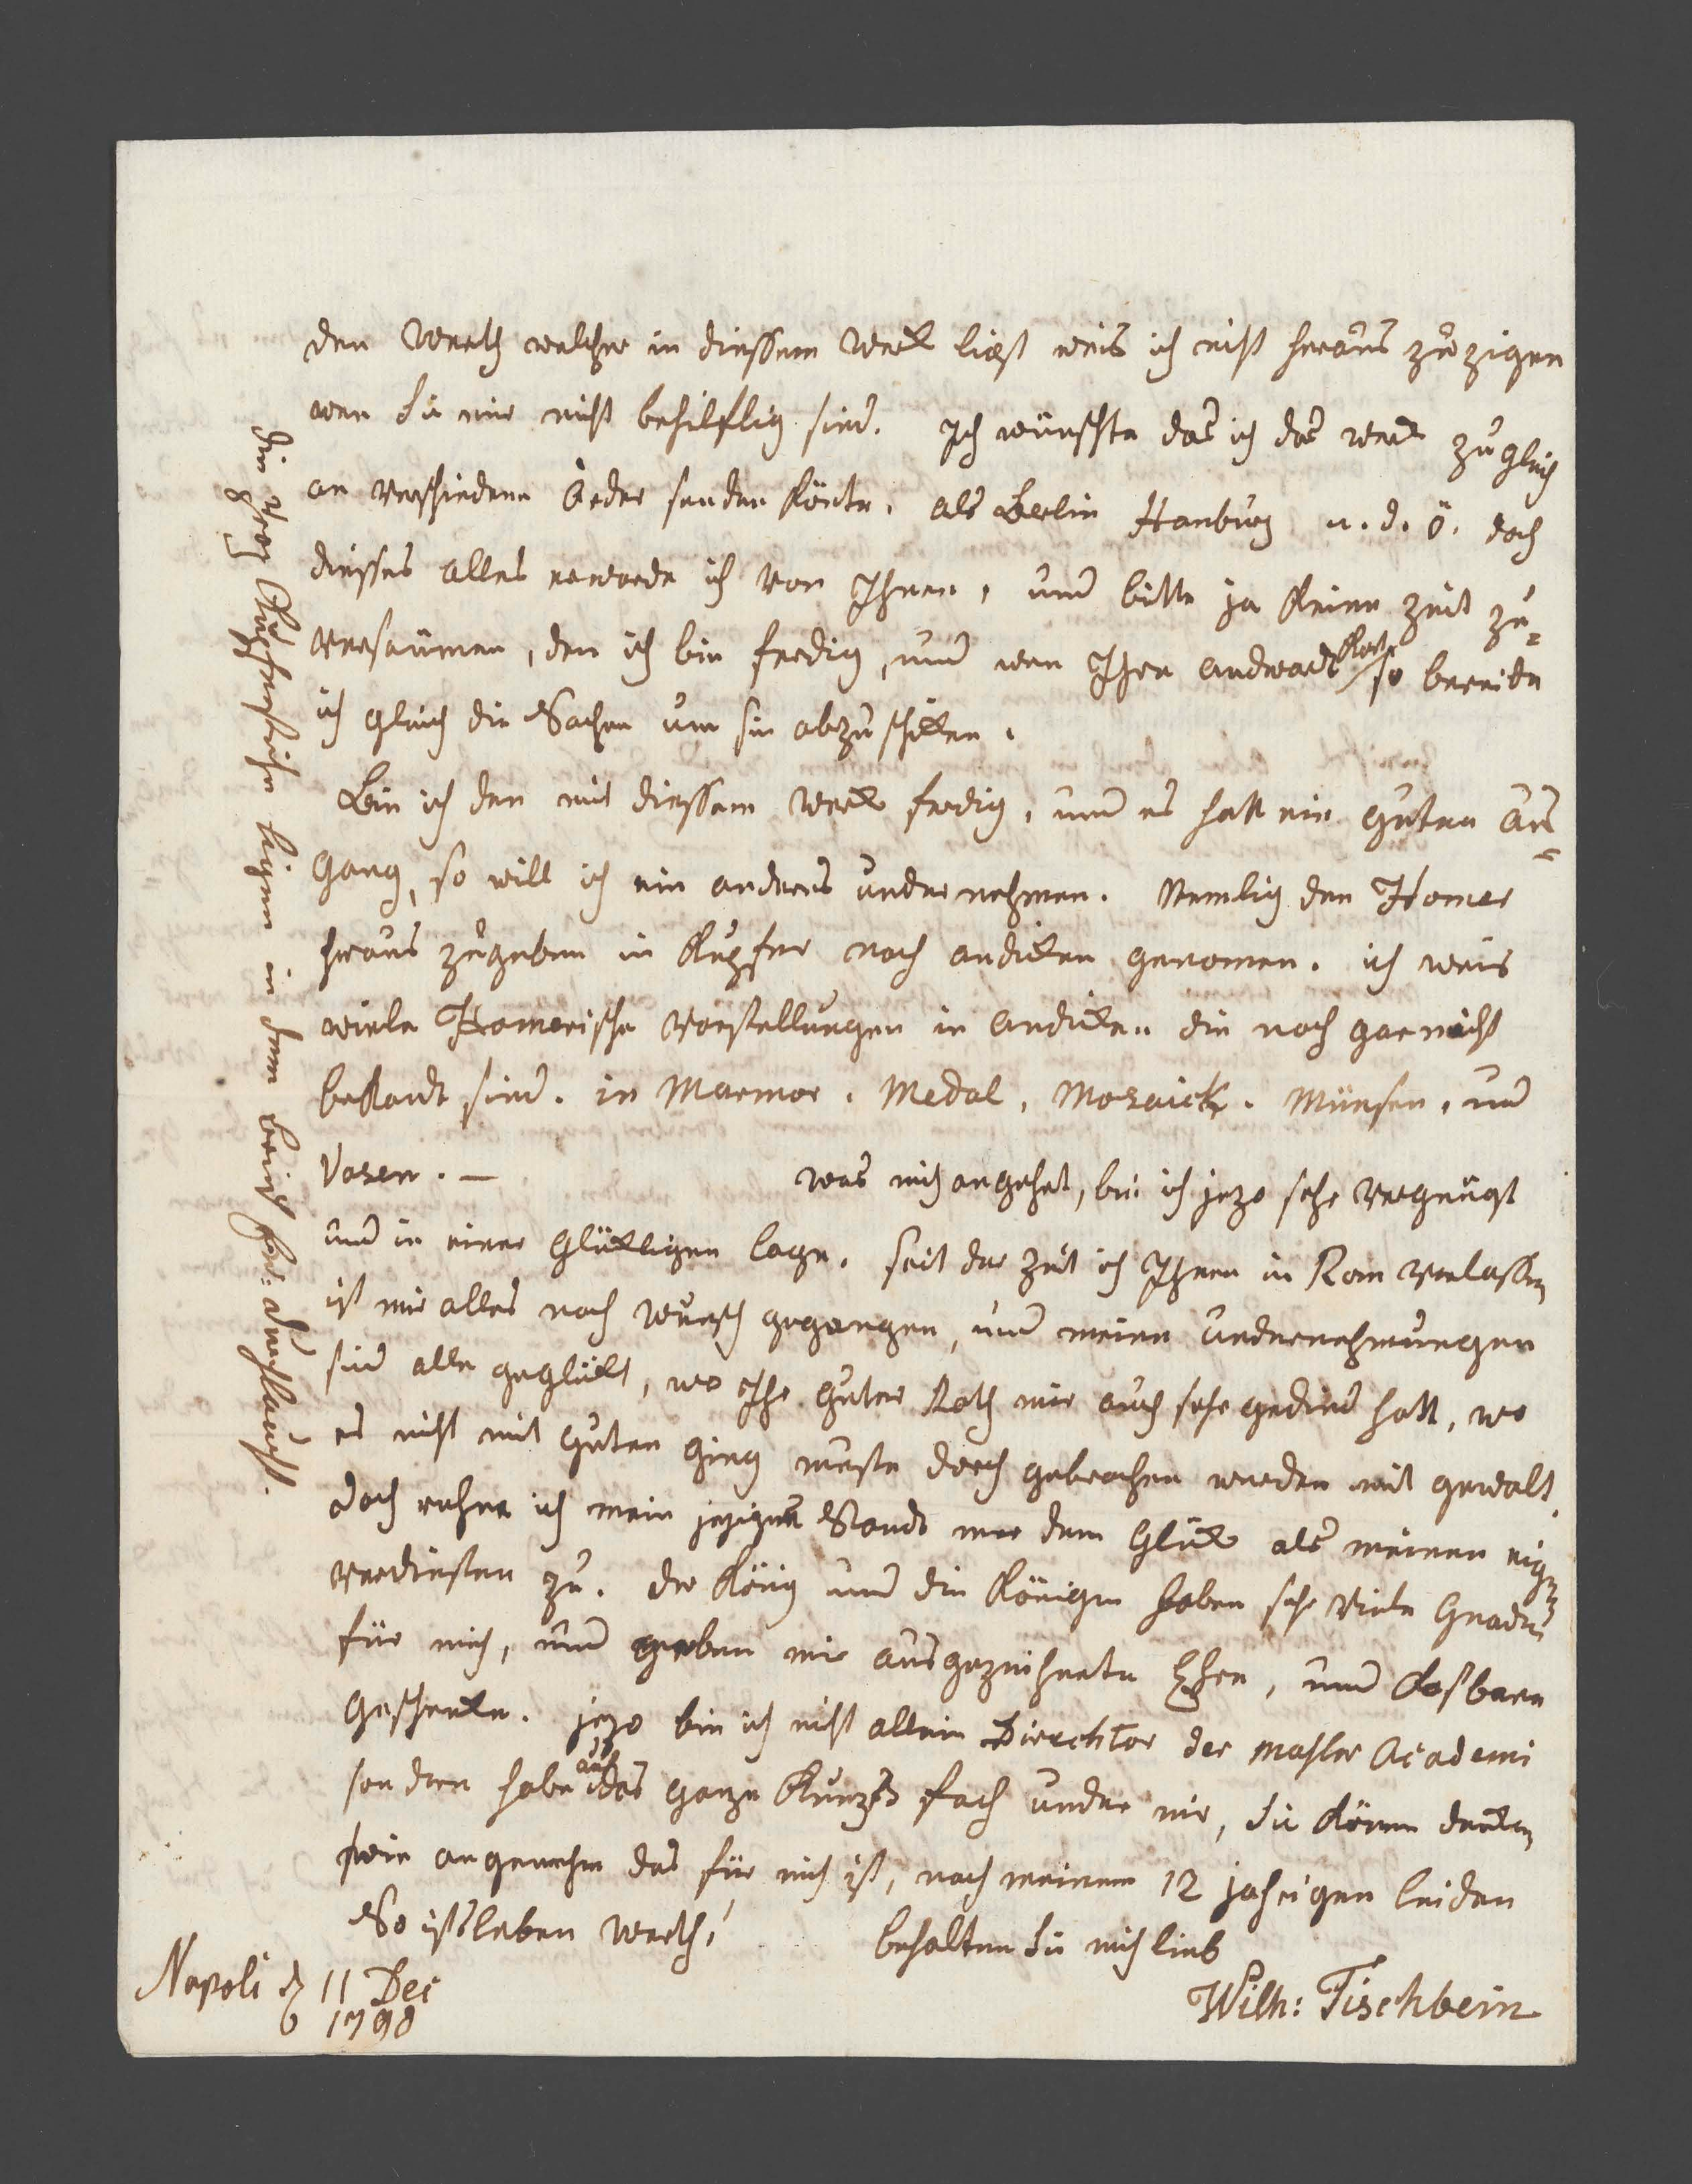 den Werth welcher in diessem Werk ligt weis ich nicht heraus zu zigen
wen Sie mir nicht behilflig sind. Ich wünschte das ich das werk zugleich
an verschiedene Örder senden könte. als Berlin Hanburg u. d. ö. doch
diesses alles erwarde ich von Ihnen, und bitte ja keine zeit zu=
versäumen, den ich bin ferdig, und wen Ihre andwort so bereide
ich gleich die Sachen um sie abzuschikken.
Bin ich den mit diessem Werk ferdig, und es hatt ein guten Aus=
gang, so will ich ein anderes undernehmen. Nemlig den Homer
heraus zugeben in Kupfer nach andiken genomen. ich weis
viele Homerische Vorstellungen in andiken die noch gar nicht
bekandt sind. in Marmor. Medal, Mosaick. Münsen, und
Vasen. — was mich angehet, bin ich jezo sehr vergnügt
und in einer glükligen lage. seit der Zeit ich Ihnen in Rom verlassen
ist mir alles nach wunsch gegangen, und meine undernehmungen
sind alle geglükt, wo Ihr guter Rath mir auch sehr gedind hatt, wo
es nicht mit guten ging muste doch gebrochen werden mit gewalt.
doch rehne ich mein jezigen Stande mer dem Glük als meinen eigen
verdiensten zu. der König und die Königen haben sehr viele Gnade
für mich, und geben mir ausgezeichnete Ehre, und kosbare
geschenke. jezo bin ich nicht allein Dirrchtor der mahler Academi
sondern habe auch das ganze Kunzs fach under mir, Sie können denken
wie angenehm das für mich ist, nach meinem 12 jahrigen leiden
So ists leben werth! behalten Sie mich lieb
Wilh: Tischbein
Napoli d 11 Dec
1790
die zwey Kupferstiche ligen in dem brief fon: durchlaucht.